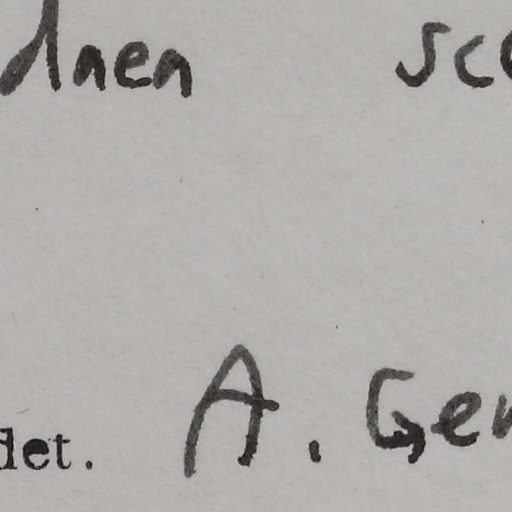 dnen sc
det. A. Gen